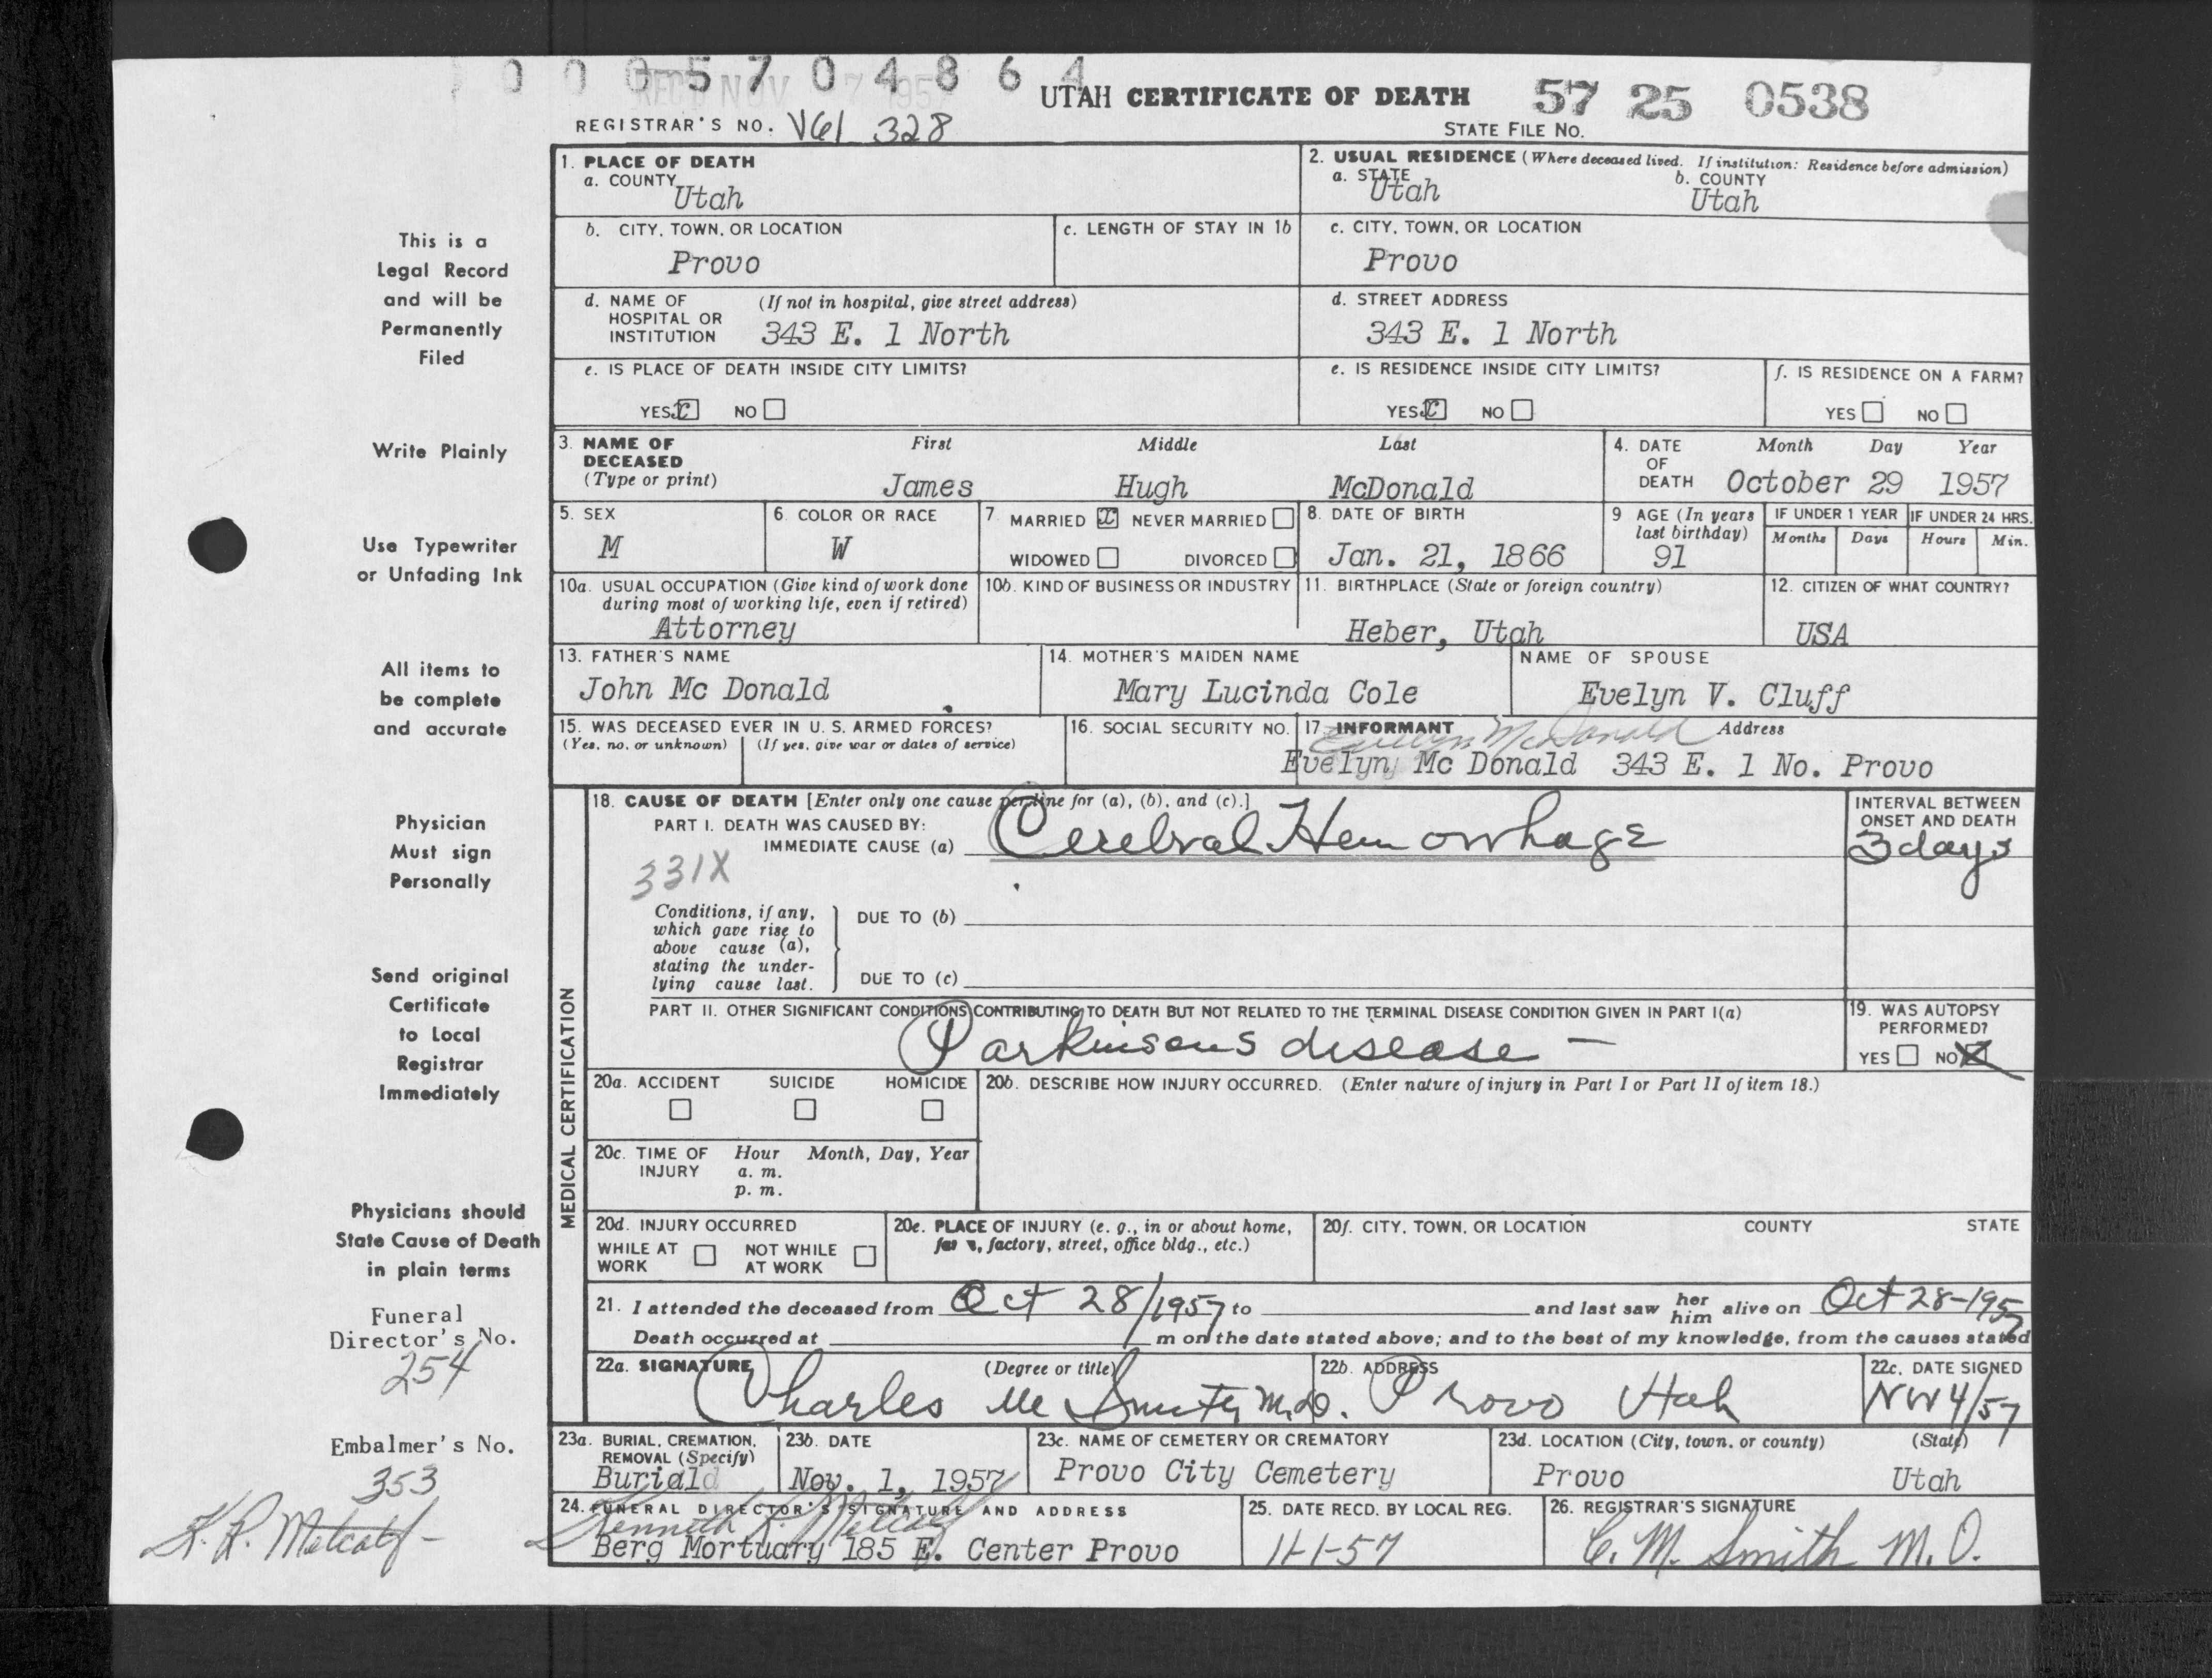 0 0 0 5 7 0 4 8 6 4
REC'D NOV 7 1957
UTAH CERTIFICATE OF DEATH
57 25 0538
REGISTRAR'S NO. V61 328
STATE FILE NO.
This is a
Legal Record
and will be
Permanently
Filed
Write Plainly
Use Typewriter
or Unfading Ink
All items to
be complete
and accurate
Physician
Must sign
Personally
Send original
Certificate
to Local
Registrar
Immediately
Physicians should
State Cause of Death
in plain terms
Funeral
Director's No.
254
Embalmer's No.
353
K. R. Metcalf
1. PLACE OF DEATH
a. COUNTY
Utah
2. USUAL RESIDENCE (Where deceased lived. If institution: Residence before admission)
a. STATE
Utah
b. COUNTY
Utah
b. CITY, TOWN, OR LOCATION
Provo
c. LENGTH OF STAY IN 1b
c. CITY, TOWN, OR LOCATION
Provo
d. NAME OF (If not in hospital, give street address)
HOSPITAL OR
INSTITUTION 343 E. 1 North
d. STREET ADDRESS
343 E. 1 North
e. IS PLACE OF DEATH INSIDE CITY LIMITS?
YES x NO
e. IS RESIDENCE INSIDE CITY LIMITS?
YES x NO
f. IS RESIDENCE ON A FARM?
YES NO
3. NAME OF First Middle Last
DECEASED
(Type or print) James Hugh McDonald
4. DATE Month Day Year
OF
DEATH October 29 1957
5. SEX
M
6. COLOR OR RACE
W
7. MARRIED x NEVER MARRIED
WIDOWED DIVORCED
8. DATE OF BIRTH
Jan. 21, 1866
9 AGE (In years
last birthday)
91
IF UNDER 1 YEAR
Months Days
IF UNDER 24 HRS.
Hours Min.
10a. USUAL OCCUPATION (Give kind of work done
during most of working life, even if retired)
Attorney
10b. KIND OF BUSINESS OR INDUSTRY
11. BIRTHPLACE (State or foreign country)
Heber, Utah
12. CITIZEN OF WHAT COUNTRY?
USA
13. FATHER'S NAME
John Mc Donald
14. MOTHER'S MAIDEN NAME
Mary Lucinda Cole
NAME OF SPOUSE
Evelyn V. Cluff
15. WAS DECEASED EVER IN U. S. ARMED FORCES?
(Yes, no, or unknown) (If yes, give war or dates of service)
16. SOCIAL SECURITY NO.
17. INFORMANT Address
Evelyn McDonald
Evelyn Mc Donald 343 E. 1 No. Provo
MEDICAL CERTIFICATION
18. CAUSE OF DEATH [Enter only one cause per line for (a), (b), and (c).]
PART I. DEATH WAS CAUSED BY:
IMMEDIATE CAUSE (a) Cerebral Hemorrhage
331X
INTERVAL BETWEEN
ONSET AND DEATH
3 days
Conditions, if any,
which gave rise to
above cause (a),
stating the under-
lying cause last.
DUE TO (b)
DUE TO (c)
PART II. OTHER SIGNIFICANT CONDITIONS CONTRIBUTING TO DEATH BUT NOT RELATED TO THE TERMINAL DISEASE CONDITION GIVEN IN PART I(a)
Parkinsons disease -
19. WAS AUTOPSY
PERFORMED?
YES NO X
20a. ACCIDENT SUICIDE HOMICIDE
20b. DESCRIBE HOW INJURY OCCURRED. (Enter nature of injury in Part I or Part II of item 18.)
20c. TIME OF Hour Month, Day, Year
INJURY a. m.
p. m.
20d. INJURY OCCURRED
WHILE AT NOT WHILE
WORK AT WORK
20e. PLACE OF INJURY (e. g., in or about home,
factory, street, office bldg., etc.)
20f. CITY, TOWN, OR LOCATION COUNTY STATE
21. I attended the deceased from Oct 28/1957 to and last saw her him alive on Oct 28-1957
Death occurred at m on the date stated above; and to the best of my knowledge, from the causes stated
22a. SIGNATURE (Degree or title)
Charles M Smith M.D.
22b. ADDRESS
Provo Utah
22c. DATE SIGNED
Nov 4/57
23a. BURIAL, CREMATION,
REMOVAL (Specify)
Burial
23b. DATE
Nov. 1, 1957
23c. NAME OF CEMETERY OR CREMATORY
Provo City Cemetery
23d. LOCATION (City, town, or county) (State)
Provo Utah
24. FUNERAL DIRECTOR'S SIGNATURE AND ADDRESS
Kenneth R. Metcalf
Berg Mortuary 185 E. Center Provo
25. DATE RECD. BY LOCAL REG.
11-1-57
26. REGISTRAR'S SIGNATURE
C. M. Smith M. D.